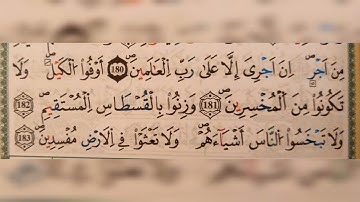 مِنَ اَجْرٍ ۖ اِنْ اَجْرِىَ اِلَّا عَلَىٰ رَبِّ الْعَالَمِينَ ۖ 180 اَوْفُوا الْكَيْلَ وَلَا
تَكُونُوا مِنَ الْمُخْسِرِينَ ۖ 181 وَزِنُوا بِالْقُسْطَاسِ الْمُسْتَقِيمِ ۖ 182
وَلَا تَبْخَسُوا النَّاسَ اَشْيَاءَهُمْ ۖ وَلَا تَعْثَوْا فِى الْاَرْضِ مُفْسِدِينَ ۖ 183